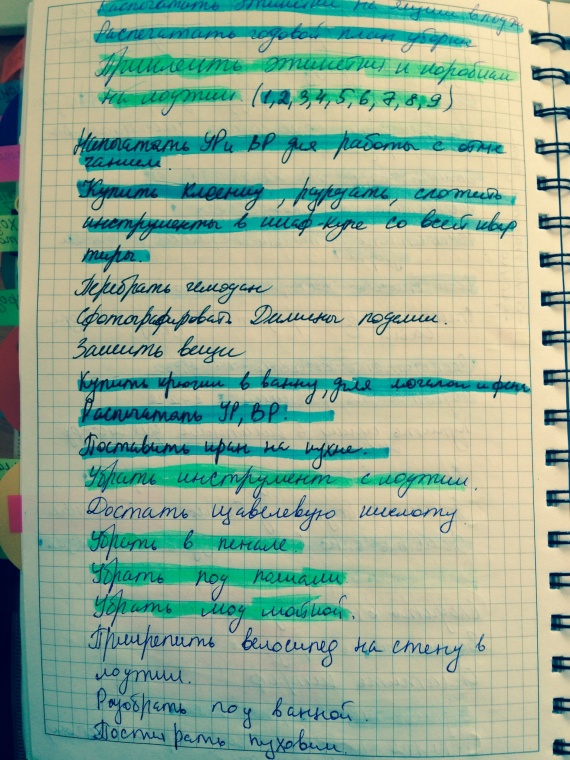 Распечатать этикетки на ящики в лодж
Распечатать годовой план уборки
Приклеить этикетки к коробкам
на лоджии (1,2,3,4,5,6,7,8,9)
Напечатать УР и ВР для работы с
Купить клеенку, разрезать, сложить
инструменты в шкаф-купе со всей квар
тиры.
Перебрать чемодан
Сфотографировать поделки.
Зашить вещи
Купить крючки в ванну, для мочалок и фена
Распечатать УР, ВР.
Поставить кран на кухне.
Убрать инструмент с лоджии.
Достать щавелевую кислоту
Убрать в пенале
Убрать под пальмами
Убрать мойкой.
Прикрепить велосипед на стену в
лоджии.
Разобрать под ванной.
Постирать пуховик.